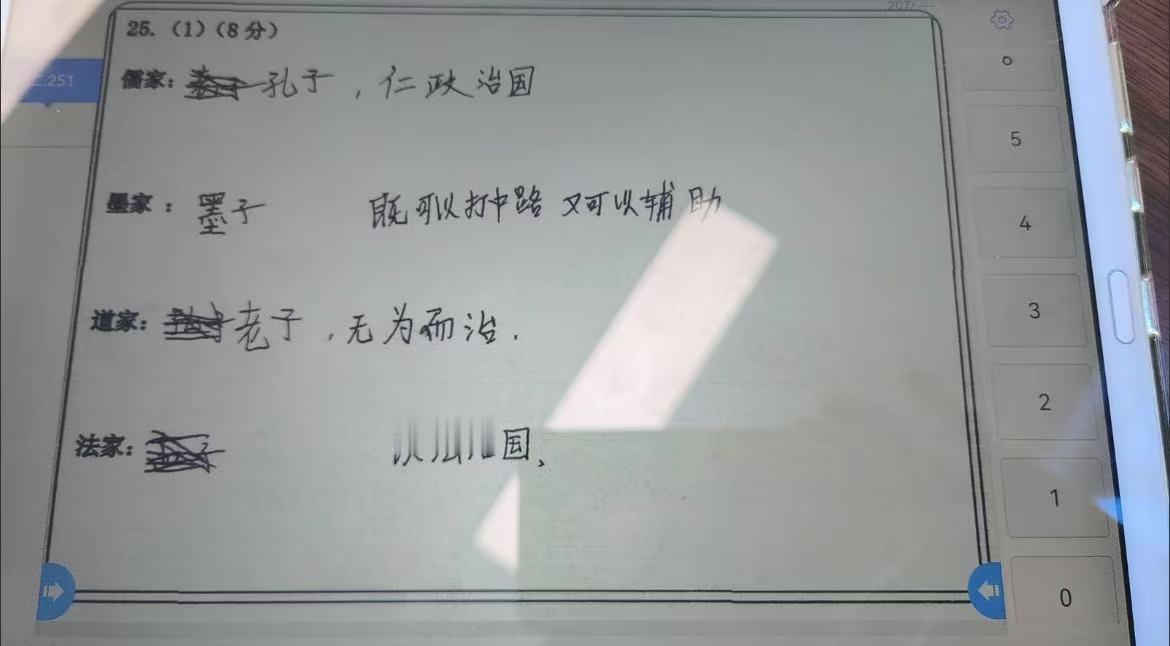 25.（1）（8分）
儒家：孔子，仁政治国
墨家：墨子 既可以打中路又可以辅助
道家：老子，无为而治.
法家：国、
5
4
3
2
1
0